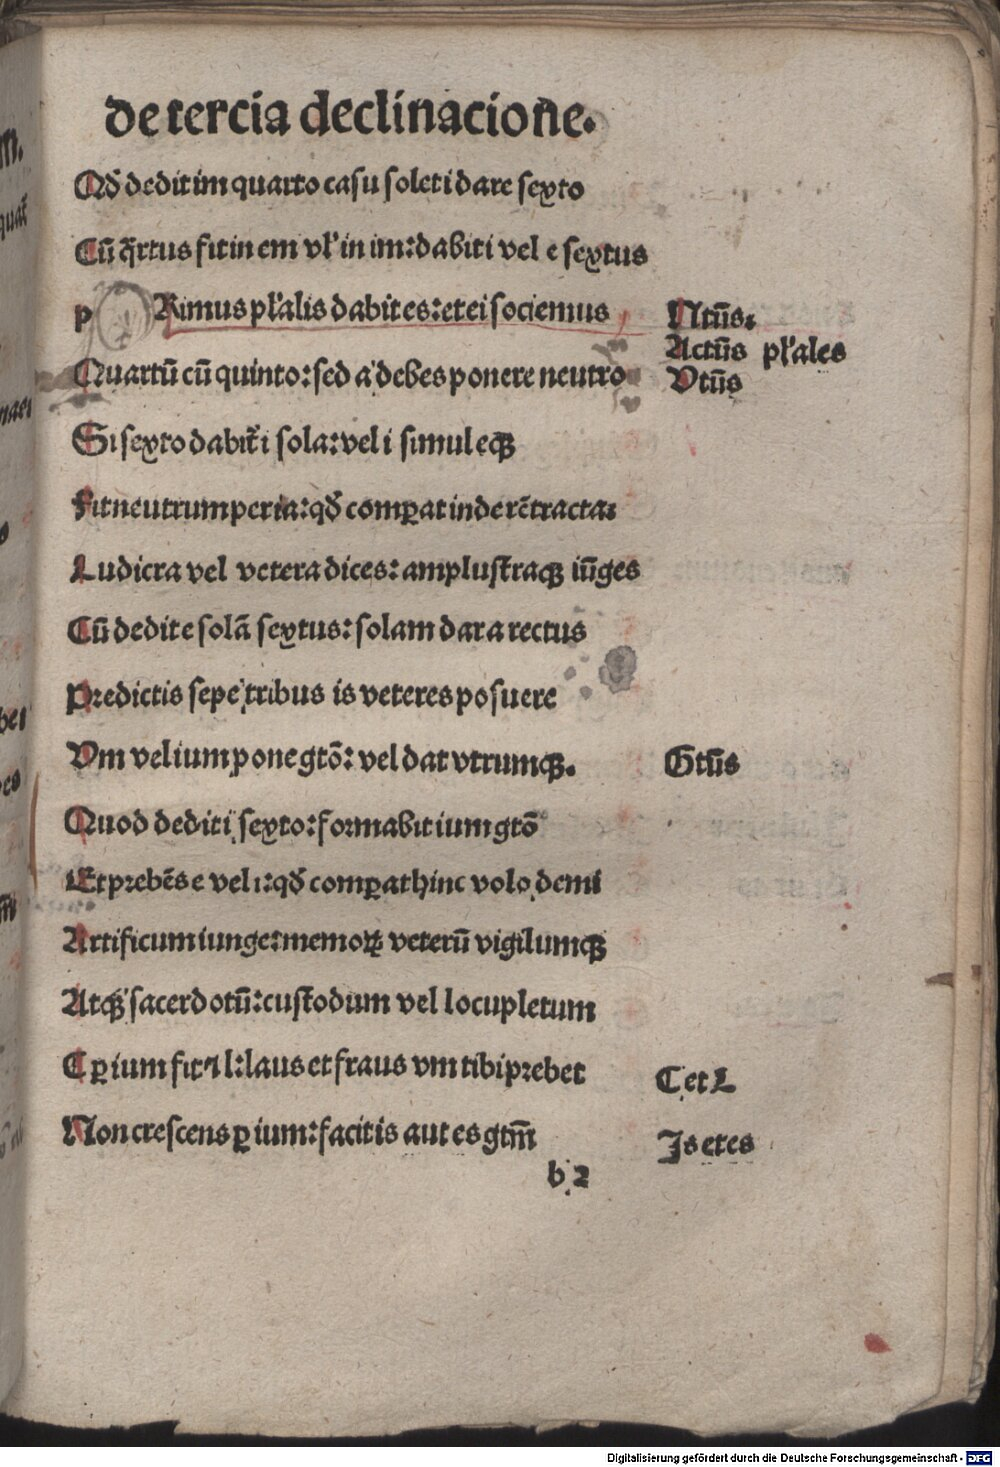 de tercia declinacione.
Qđ dedit im quarto casu solet i dare sexto
Cū q̄rtus fit in em vl' in im: dabit i vel e sextus
pRimus pl'alis dabit es: et ei sociemus Ntūs:
Actūs pl'ales
Quartū cū quinto: sed a debes ponere neutro Vtūs
Si sexto dabit̄ i sola: vel i simul eqꝫ
Fit neutrum per ia: qđ comꝑat inde rētracta:
Ludicra vel vetera dices: amplustraqꝫ iūges
Cū dedit e solā sextus: solam dar a rectus
Predictis sepe tribus is veteres posuere
Vm vel ium pone gtō: vel dat vtrumqꝫ. Gtūs
Quod dedit i sexto: formabit ium gtō
Et prebēs e vel i: qđ comꝑat hinc volo demi
Artificum iunge: memoꝝ veterū vigilumqꝫ
Atqꝫ sacerdotū: custodum vel locupletum
C ꝑ ium fit ⁊ l: laus et fraus vm tibi prebet C et L
Non crescens ꝑ ium: facit is aut es gtm̄ Is et es
b 2
Digitalisierung gefördert durch die Deutsche Forschungsgemeinschaft - DFG